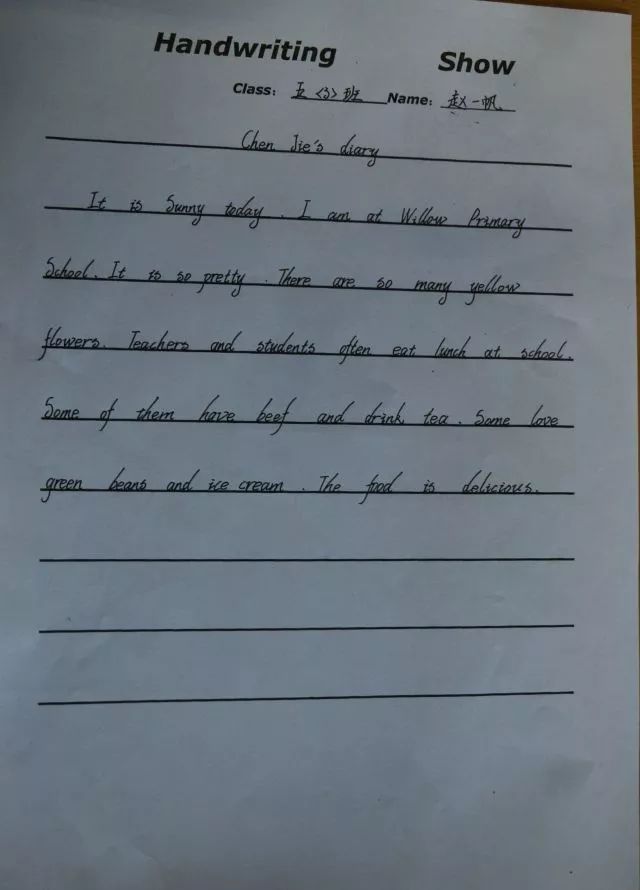 Handwriting Show
Class: 五<3>班 Name: 赵一帆
Chen Jie's diary
It is Sunny today. I am at Willow Primary
School. It is so pretty. There are so many yellow
flowers. Teachers and students often eat lunch at school.
Some of them have beef and drink tea. Some love
green beans and ice cream. The food is delicious.